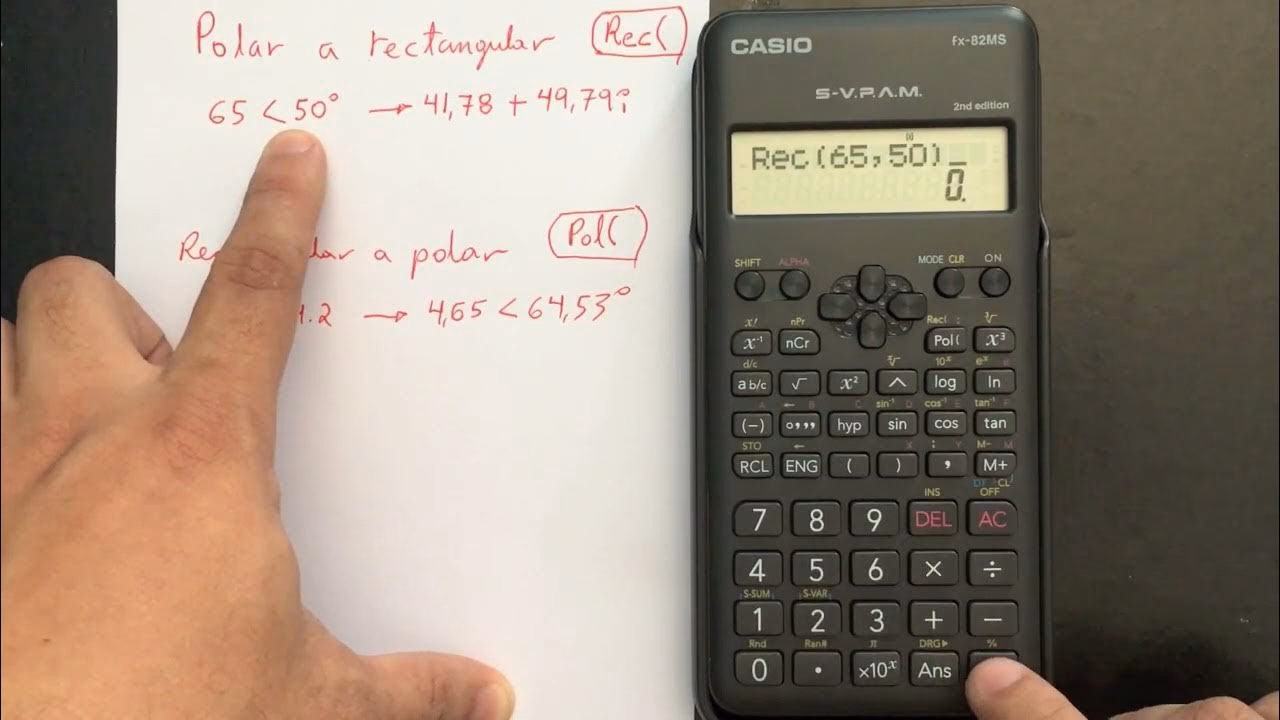 Polar a rectangular Rec(
65 < 50° → 41,78 + 49,79i
a polar Pol(
.2 → 4,65 < 64,53°
CASIO fx-82MS
S-V.P.A.M.
2nd edition
Rec(65,50)
0.
SHIFT ALPHA MODE CLR ON
x! nPr Rec( : ³√
x⁻¹ nCr Pol( x³
d/c ˣ√ 10ˣ eˣ e
a b/c √ x² ^ log ln
A ← B C sin⁻¹ D cos⁻¹ E tan⁻¹ F
(−) °,,, hyp sin cos tan
STO ← X ; Y M− M
RCL ENG ( ) , M+
DT CL
INS OFF
7 8 9 DEL AC
4 5 6 × ÷
S-SUM S-VAR
1 2 3 + −
Rnd Ran# π DRG▶ %
0 . ×10ˣ Ans